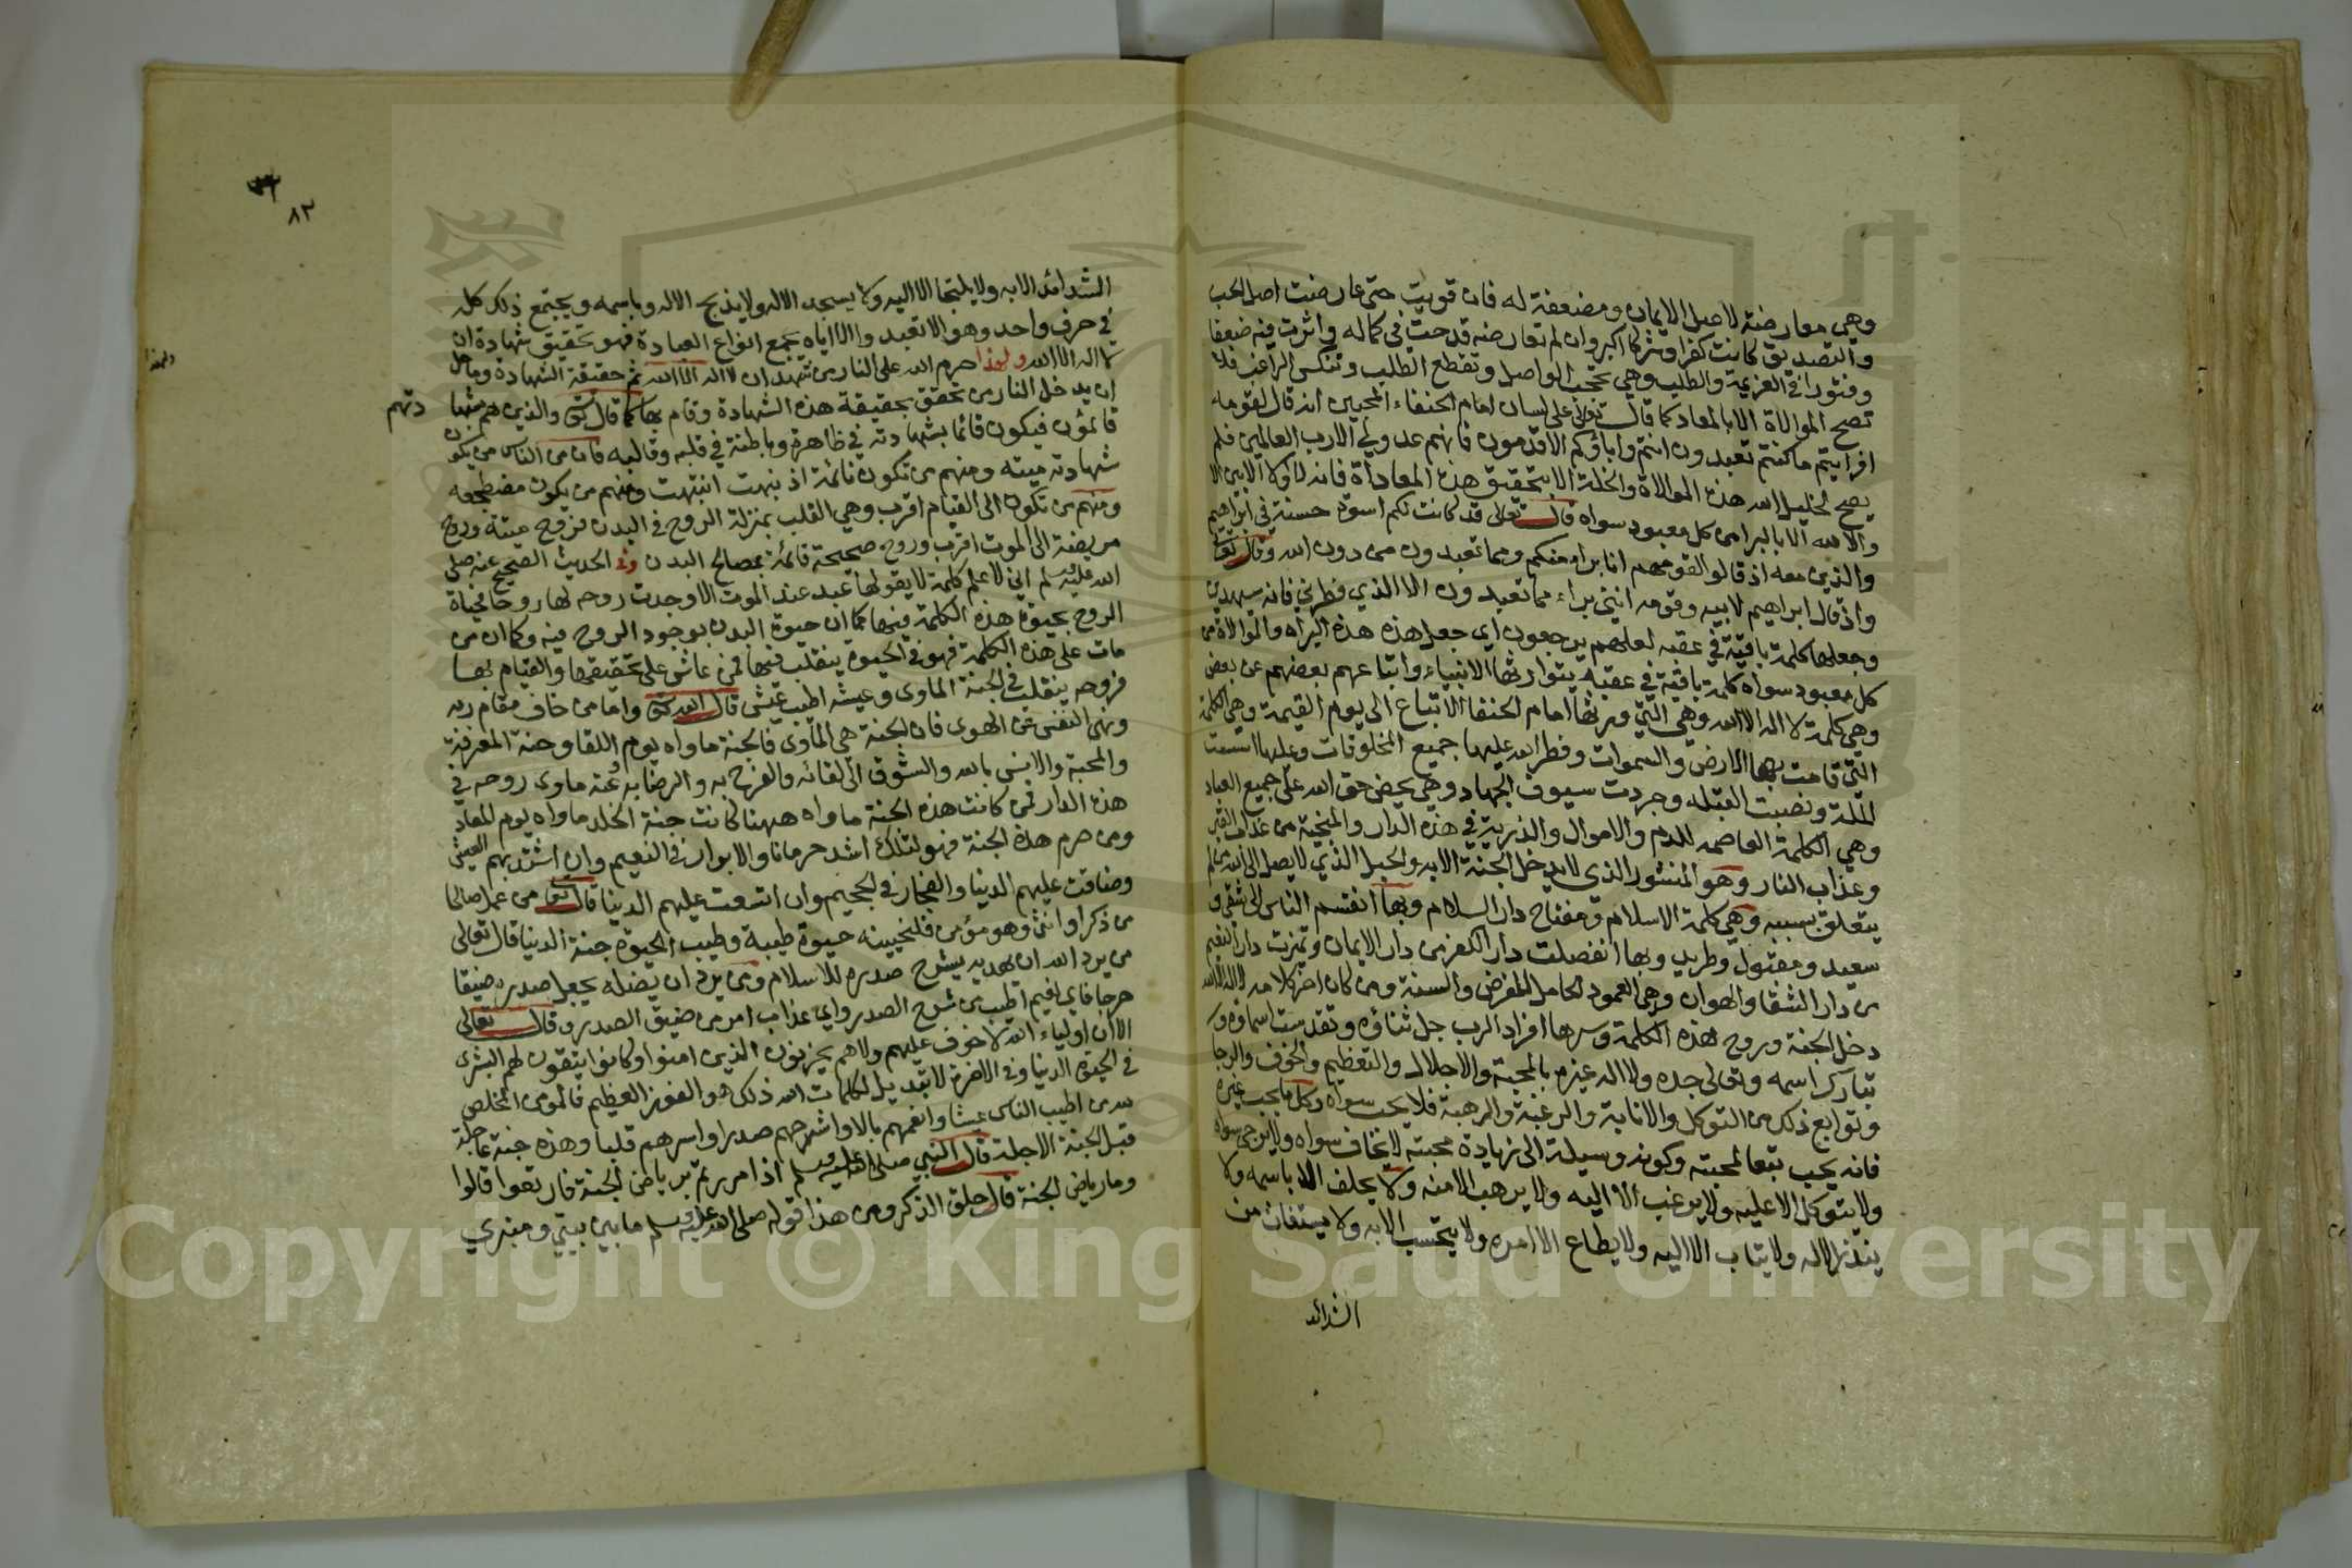 وهي معارضة لاصل الايمان ومضعفة له فان قويت حتى عارضت اصل الحب
والتصديق كانت كفرا وشركا اكبر وان لم تعارضه قدحت في كماله واثرت فيه ضعفا
وفتورا في العزيمة والطلب وهي تحجب الواصل وتقطع الطالب وتنكس الراغب فلا
تصح الموالاة الا بالمعاداة كما قال تعالى على لسان امام الحنفاء المحبين انه قال لقومه
افرايتم ما كنتم تعبدون انتم واباؤكم الاقدمون فانهم عدو لي الا رب العالمين فلم
يصح لخليل الله هذه الموالاة والخلة الا بتحقيق هذه المعاداة فانه لا ولاء الا ببراء
ولا لله الا بالبرا من كل معبود سواه قال تعالى قد كانت لكم اسوة حسنة في ابراهيم
والذين معه اذ قالوا لقومهم انا براء منكم ومما تعبدون من دون الله وقال تعا
واذ قال ابراهيم لابيه وقومه انني براء مما تعبدون الا الذي فطرني فانه سيهدين
وجعلها كلمة باقية في عقبه لعلهم يرجعون اي جعل هذه هذه البراه والموالاة من
كل معبود سواه كلمة باقية في عقبه يتوارثها الانبياء واتباعهم بعضهم عن بعض
وهي كلمة لا اله الا الله وهي التي ورثها امام الحنفا لاتباع الى يوم القيمة وهي الكلمة
التي قامت بها الارض والسموات وفطر الله عليها جميع المخلوقات وعليها اسست
الملة ونصبت القبله وجردت سيوف الجهاد وهي محض حق الله على جميع العباد
وهي الكلمة العاصمه للدم والاموال والذرية في هذه الدار والمنجية من عذاب القبر
وعذاب النار وهو المنشور الذي لا يدخل الجنة الا به والحبل الذي لا يصل الى الله من لم
يتعلق بسببه وهي كلمة الاسلام ومفتاح دار السلام وبها انقسم الناس الى شقي و
سعيد ومقبول وطريد وبها انفصلت دار الكفر من دار الايمان وتميزت دار النعيم
من دار الشقا والهوان وهي العمود الحامل للفرض والسنة ومن كان اخر كلامه لا اله الا الله
دخل الجنة وروح هذه الكلمة وسرها افراد الرب جل ثناؤه وتقدست اسماؤه و
تبارك اسمه وتعالى جده ولا اله غيره بالمحبة والاجلال والتعظيم والخوف والرجا
وتوابع ذلك من التوكل والانابة والرغبة والرهبة فلا يحب سواه وكل ما يحب غيره
فانه يحب تبعا لمحبته وكونه وسيلة الى زيادة محبته لا يخاف سواه ولا يرجى سواه
ولا يتوكل الا عليه ولا يرغب الا اليه ولا يرهب الا منه ولا يحلف الا باسمه ولا
ينذر الا له ولا يتاب الا اليه ولا يطاع الا امره ولا يتحسب الا به ولا يستغاث من
الشدائد
٨٢
الشدائد الا به ولا يلتجا الا اليه ولا يسجد الا له ولا يذبح الا له وباسمه ويجتمع ذلك كله
في حرف واحد وهو الا تعبد والا اياه بجمع انواع العبادة فهو تحقيق شهادة ان
لا اله الا الله ولهذا حرم الله على النار من شهد ان لا اله الا الله ثم حقيقة الشهادة ومحال
ولهذا
ان يدخل النار من تحقق بحقيقة هذه الشهادة وقام بها كما قال تعا والذين هم بشها
دتهم
قائمون فيكون قائما بشهادته في ظاهره وباطنه في قلبه وقالبه فان من الناس من يكون
شهادته ميته ومنهم من تكون نائمة اذ نبهت انتبهت ومنهم من يكون مضطجعه
ومنهم من تكون الى القيام اقرب وهي القلب بمنزلة الروح في البدن فروح ميتة وروح
مريضة الى الموت اقرب وروح صحيحة قائمة بمصالح البدن وفي الحديث الصحيح عنه صلى
الله عليه وسلم اني لاعلم كلمة لا يقولها عبد عند الموت الا وجدت روحه لها روحا فحياة
الروح بحيوة هذه الكلمة فيها كما ان حيوة البدن بوجود الروح فيه وكما ان من
مات على هذه الكلمة فهو في الحيوة ينقلب فيها فمن عاش على تحقيقها والقيام بها
فروحه ينقلب في الجنة الماوى وعيشه اطيب عيش قال الله تعا واما من خاف مقام ربه
ونهى النفس عن الهوى فان الجنة هي الماوى فالجنة ماواه يوم اللقا وجنة المعرفة
والمحبة والانس بالله والشوق الى لقائه والفرح به والرضا به وعنه ماوى روحه في
هذه الدار فمن كانت هذه الجنة ماواه ههنا كانت جنة الخلد ماواه يوم المعاد
ومن حرم هذه الجنة فهو لتلك اشد حرمانا والابرار في النعيم وان اشتد بهم العيش
وضاقت عليهم الدينا والفجار في الجحيم وان اتسعت عليهم الدينا قال تعا من عمل صالحا
من ذكر او انثى وهو مؤمن فلنحيينه حيوة طيبة وطيب الحيوة جنة الدينا قال تعالى
من يرد الله ان يهديه يشرح صدره للاسلام ومن يرد ان يضله يجعل صدره ضيقا
حرجا فاي نعيم اطيب من شرح الصدر واي عذاب امر من ضيق الصدر وقال تعالى
الا ان اولياء الله لا خوف عليهم ولا هم يحزنون الذين امنوا وكانوا يتقون لهم البشرى
في الحيوة الدينا وفي الاخرة لا تبديل لكلمات الله ذلك هو الفوز العظيم فالمومن المخلص
لله من اطيب الناس عيشا وانعمهم بالا واشرحهم صدرا واسرهم قلبا وهذه جنة عاجلة
قبل الجنة الاجلة قال النبي صلى الله عليه وسلم اذا مررتم برياض الجنة فارتعوا قالوا
وما رياض الجنة قال حلق الذكر ومن هذا قوله صلى الله عليه وسلم ما بين بيتي ومنبري
Copyright © King Saud University